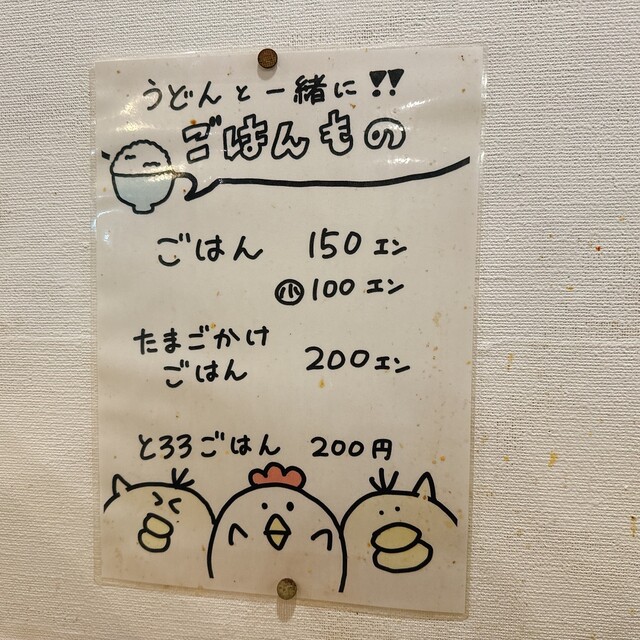 うどんと一緒に!!
ごはんもの
ごはん 150エン
㊙100エン
たまごかけ
ごはん 200エン
とろろごはん 200円